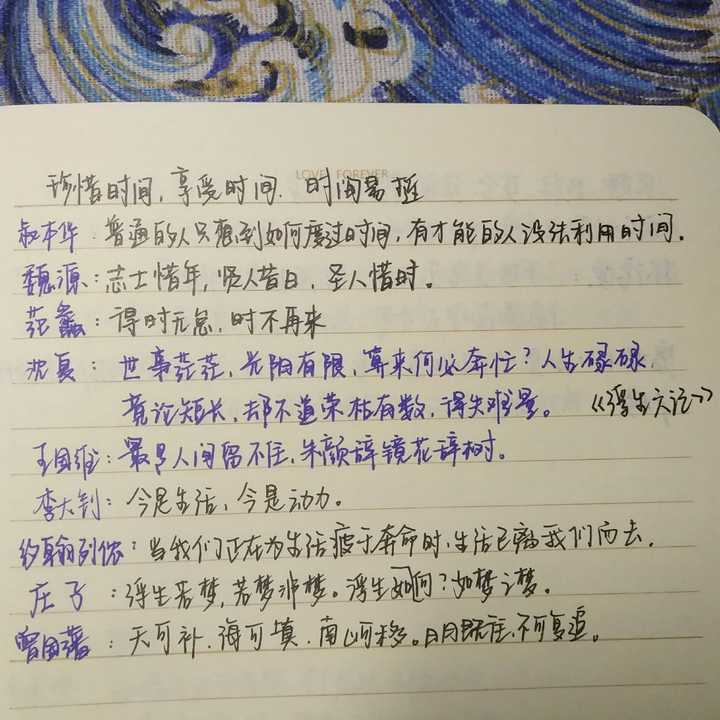 LOVE FOREVER
珍惜时间,享受时间. 时间易逝
叔本华:普通的人只想到如何度过时间,有才能的人设法利用时间.
魏源:志士惜年,贤人惜日,圣人惜时。
范蠡:得时无怠,时不再来
沈复:世事茫茫,光阴有限,算来何必奔忙?人生碌碌,
竟论短长,却不道荣枯有数,得失难量。 《浮生六记》
王国维:最是人间留不住,朱颜辞镜花辞树。
李大钊:今是生活,今是动力。
约翰列侬:当我们正在为生活疲于奔命时,生活已离我们而去.
庄子:浮生若梦,若梦非梦。浮生如何?如梦之梦。
曾国藩:天可补.海可填.南山可移。日月既往.不可复追。